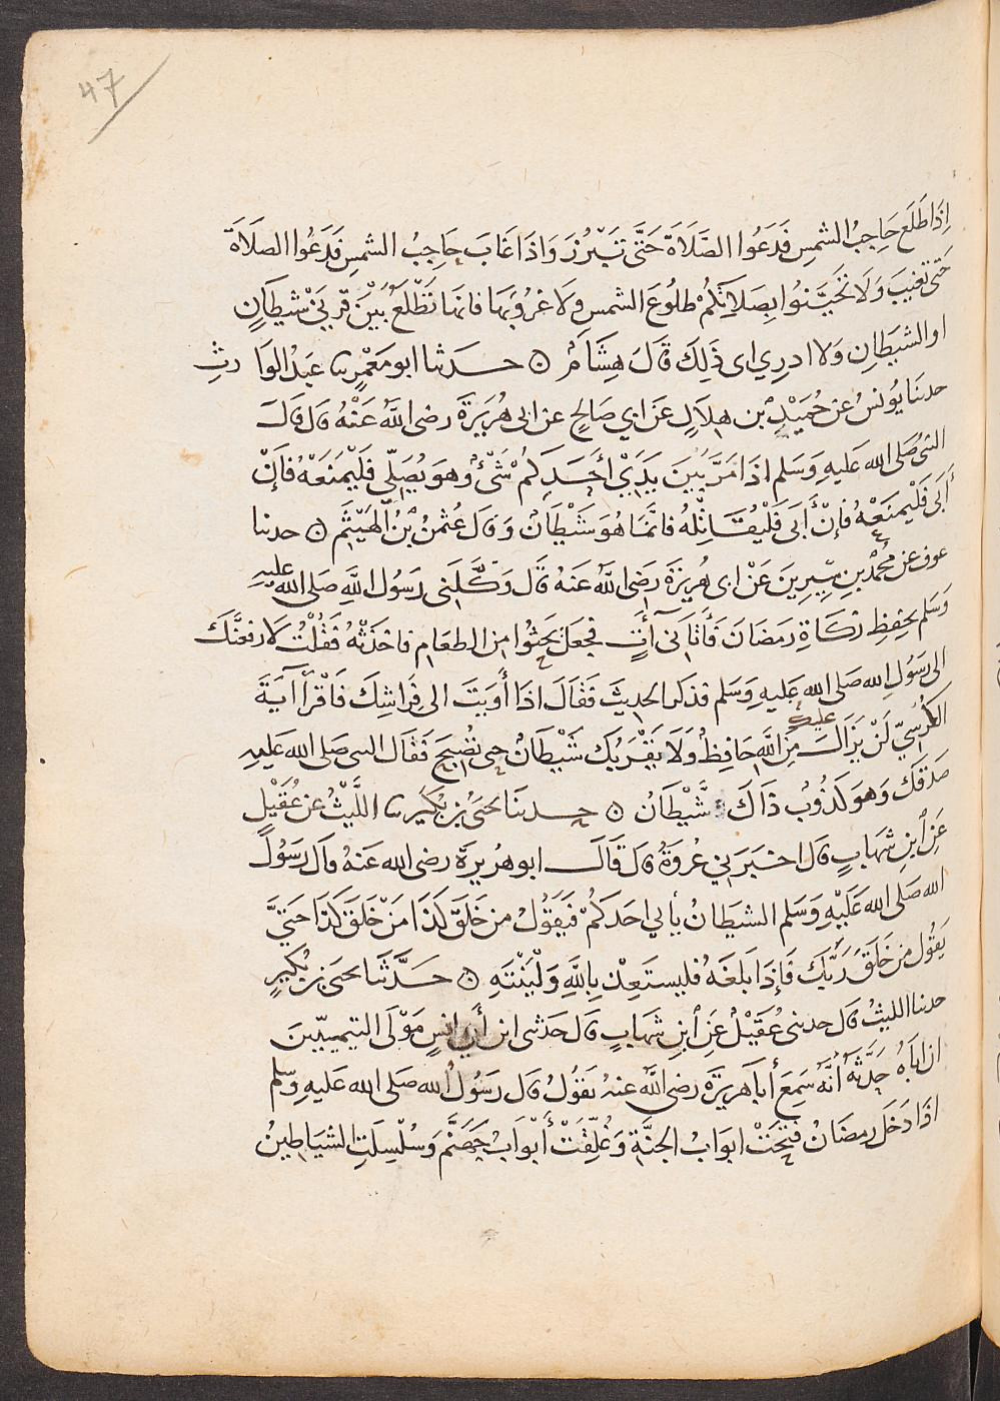 47
اِذَا طَلَعَ حَاجِبُ الشمسِ فَدَعُوا الصَّلَاةَ حَتَّى تَبْرُزَ وَاذَا غَابَ حَاجِبُ الشمسِ فَدَعُوا الصلَاةَ
حَتى تغيبَ وَلَا تَحَيَّنُوا بِصَلَاتِكُم طلُوعَ الشمسِ وَلا غرُوبَهَا فانهَا تَطْلُعُ بَيْنَ قرنَيْ شيطَانٍ
او الشيطَانِ وَلا ادرِي اى ذَلِكَ قَالَ هِشَامٌ ۞ حدثنا ابو مَعْمَرٍ ثنا عبْدُ الوَارثِ
حدثنَا يُونسُ عن حُمَيْدِ بن هِلَالٍ عَن ابي صَالحٍ عن ابى هُرَيرَةَ رضى اللَّهُ عَنْهُ قال قالَ
النبىُّ صَلى الله عَليهِ وَسَلم اذَا مَرَّ بَيْنَ يدَيْ أحَدِكُمْ شَىْءٌ وَهوَ يُصَلّي فلْيَمْنَعْهُ فَإنْ
أَبَى فَليْمنَعْهُ فَإنْ أَبَى فَلْيُقَاتِلْهُ فَانَّمَا هُوَ شَيْطَانٌ وَقالَ عُثمنُ بْنُ الهَيْثَمِ ۞ حدثنا
عوف عن مُحمَّدِ بنِ سِيرِينَ عَنْ ابى هُريْرَةَ رَضِىَ اللَّهُ عَنهُ قالَ وَكَّلَنى رَسُولُ اللَّهِ صَلى الله عليهِ
وَسَلم بحِفظِ زكَاةِ رمَضَانَ فَأتَانى آتٍ فجعَلَ يَحثُوا من الطعَامِ فاخَذْتُهُ فَقُلْتُ لَارفعَنَّكَ
الى رَسُولِ الله صَلى الله عَليهِ وَسَلم فذكر الحديثَ فَقَالَ اذَا أوَيتَ الى فِرَاشِكَ فَاقْرَأ آيَةَ
الكُرْسِيّ لَنْ يَزَالَ عليكَ مِنَ اللَّهِ حَافِظٌ وَلَا يَقْرَبُكَ شَيْطَانٌ حتى تُصْبِحَ فَقَالَ النبى صَلى الله عَليهِ
صَدَقَكَ وَهوَ كَذُوبٌ ذَاكَ شَيْطَانٌ ۞ حدثنَا يحيى بن بُكَيرٍ ثنا اللَّيْثُ عن عُقَيْلٍ
عَنِ ابنِ شهَابٍ قالَ اخبَرَنِي عُروَةُ قالَ قَالَ ابو هُرَيرَةَ رضى الله عَنهُ قالَ رَسُولُ
الله صَلى الله عَلَيْهِ وَسَلم الشيطَانُ يأتي احَدَكُمْ فَيَقُولُ من خَلَقَ كَذَا مَنْ خَلَقَ كذَا حَتَّى
يَقُول من خَلَقَ رَبَّكَ فَإذَا بَلغَهُ فليستَعِذْ بِاللَّهِ وَلْيَنْتَهِ ۞ حَدَّثَنَا يحيى بن بُكَيرٍ
حدثنا الليثُ قالَ حدثنى عُقَيْلٌ عَنِ ابنِ شهَابٍ قَالَ حَدثنى ابن أبي انسٍ مَوْلَى التيميّينَ
ان ابَاهُ حَدَّثهُ أنَّهُ سَمِعَ أبَا هريرَةَ رضى اللَّهُ عنهُ يقُولُ قالَ رَسُولُ الله صَلى الله عَليهِ وسَلم
اذَا دَخَلَ رمضَانُ فتِّحَتْ ابوَابُ الجنَّةِ وَغُلِّقَتْ أَبْوَابُ جَهَنَّمَ وَسُلْسِلَتِ الشيَاطِينُ